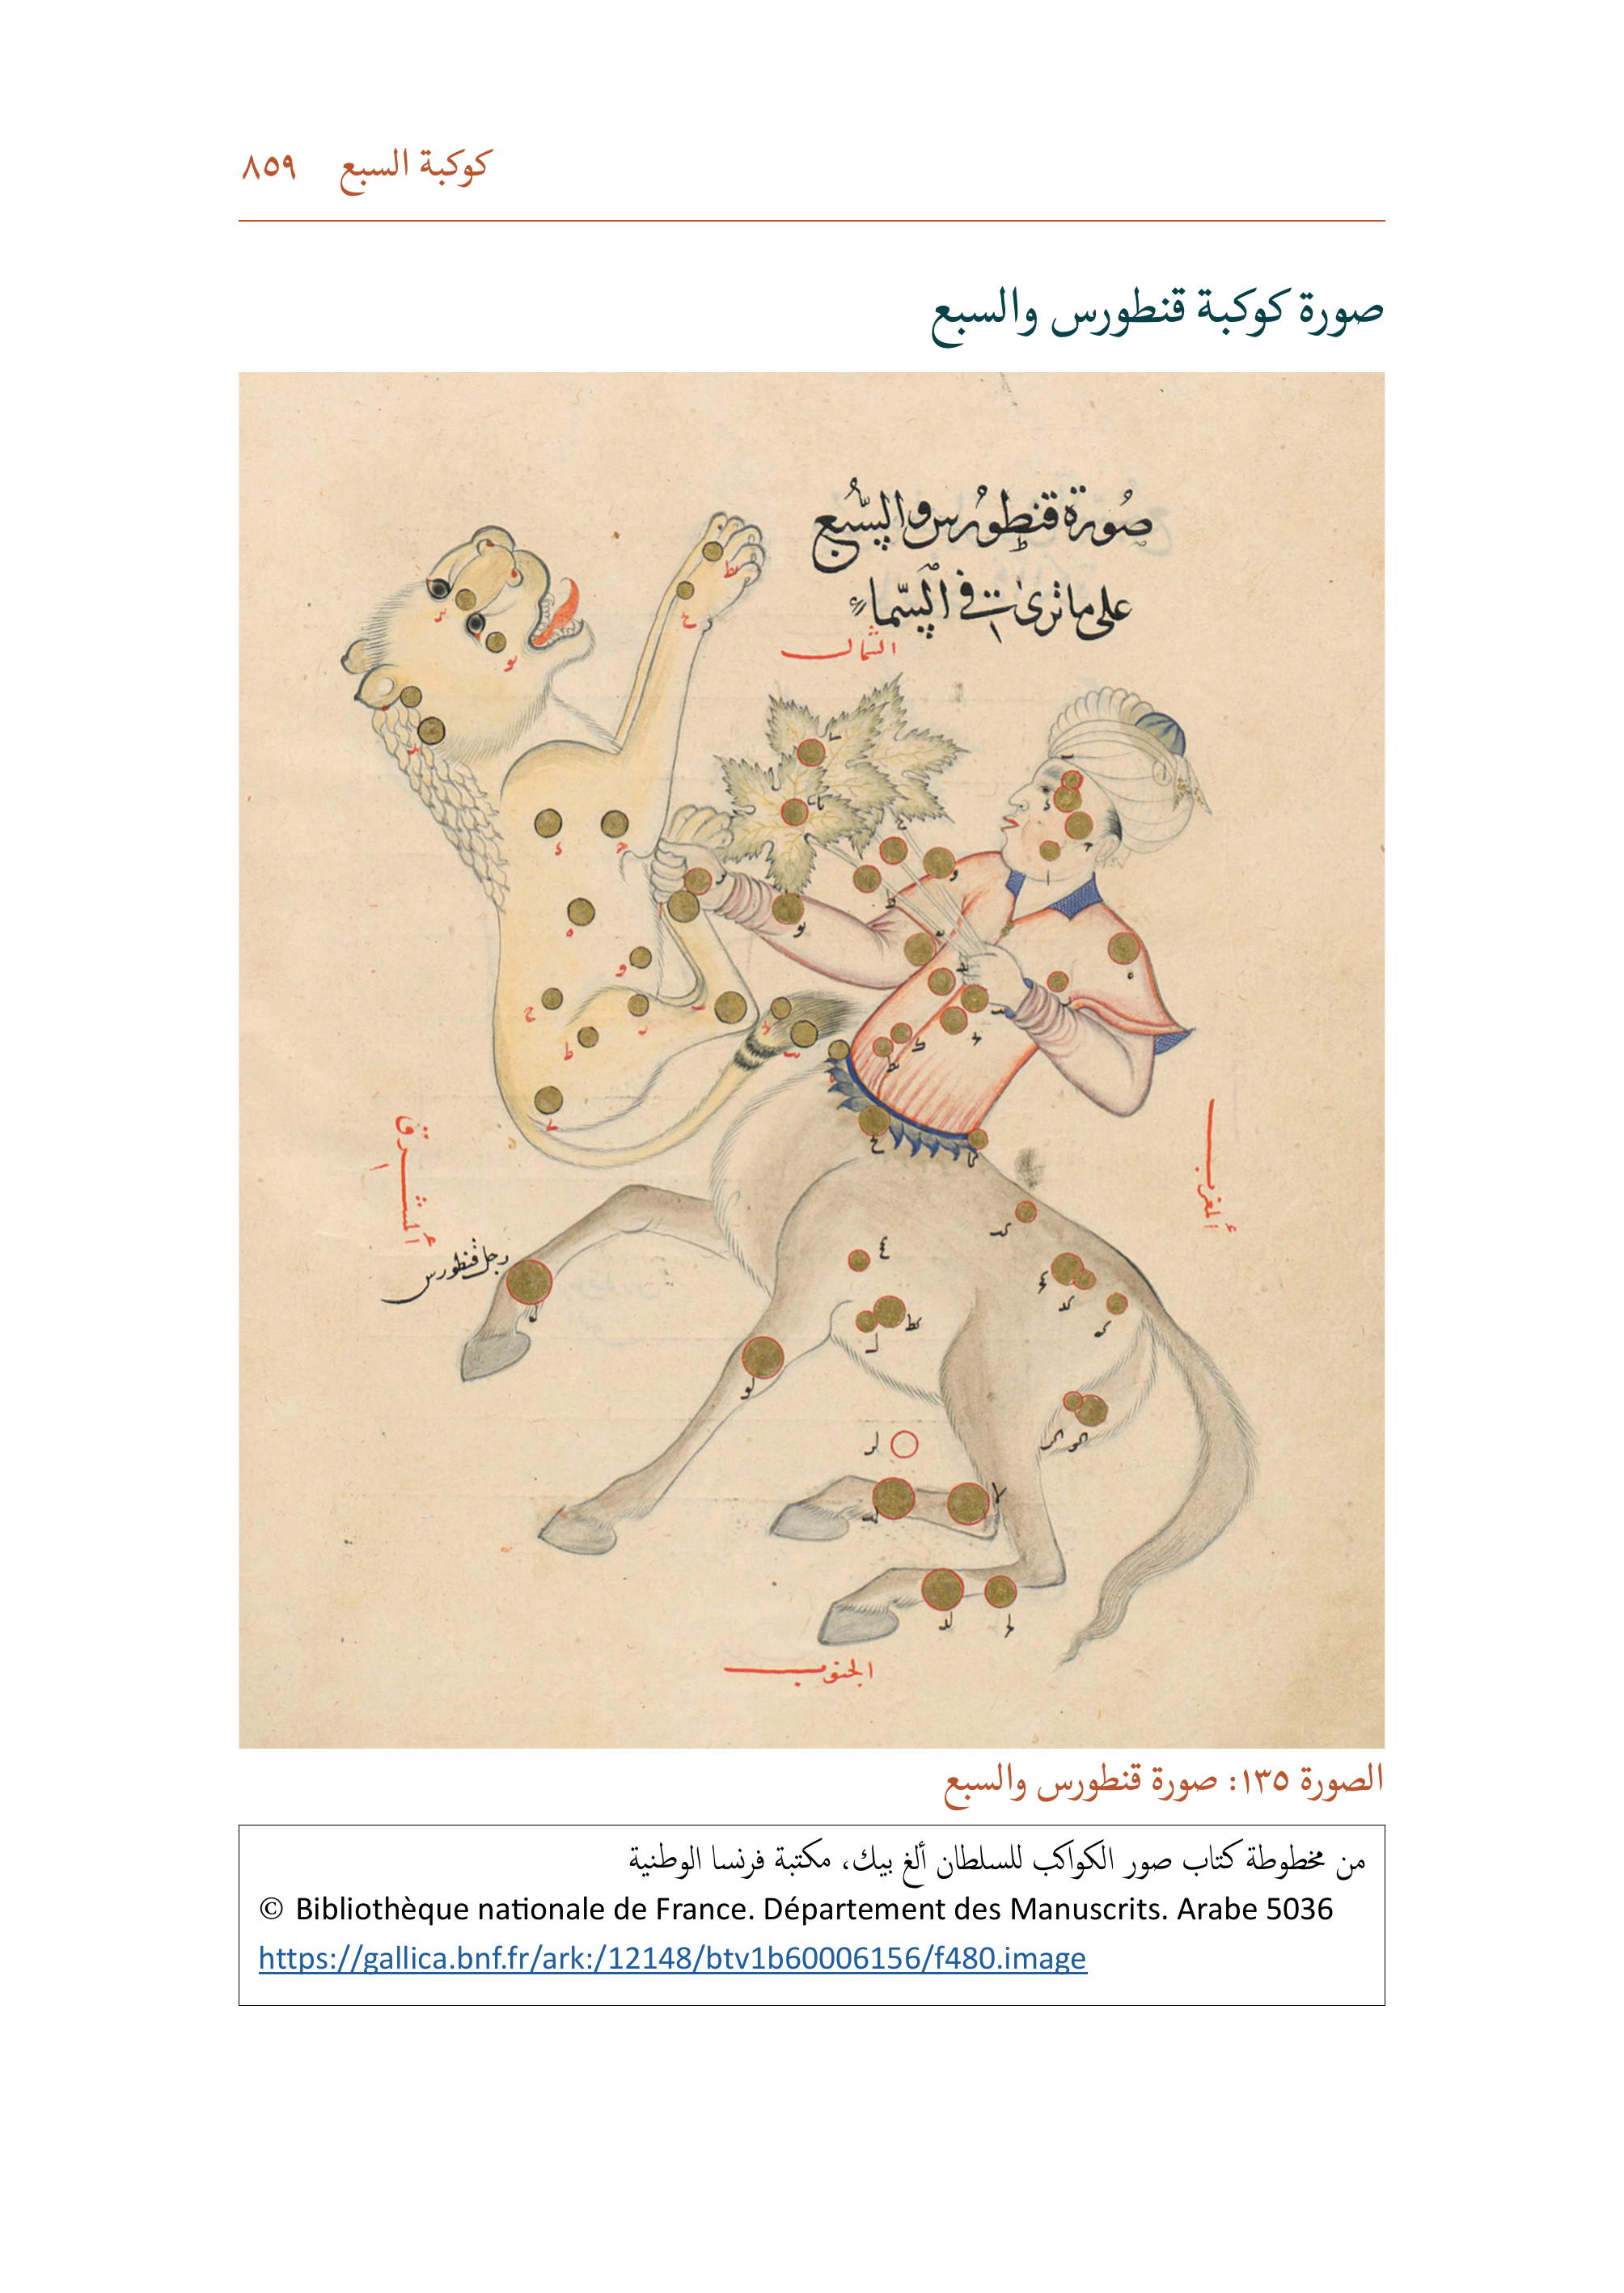 كوكبة السبع ٨٥٩
صورة كوكبة قنطورس والسبع
صُورة قنطورس والسَّبع
على ما ترىٰ في السَّماء
الشمال
المشرق
المغرب
رجل قنطورس
الجنوب
الصورة ١٣٥: صورة قنطورس والسبع
من مخطوطة كتاب صور الكواكب للسلطان ألغ بيك، مكتبة فرنسا الوطنية
© Bibliothèque nationale de France. Département des Manuscrits. Arabe 5036
https://gallica.bnf.fr/ark:/12148/btv1b60006156/f480.image